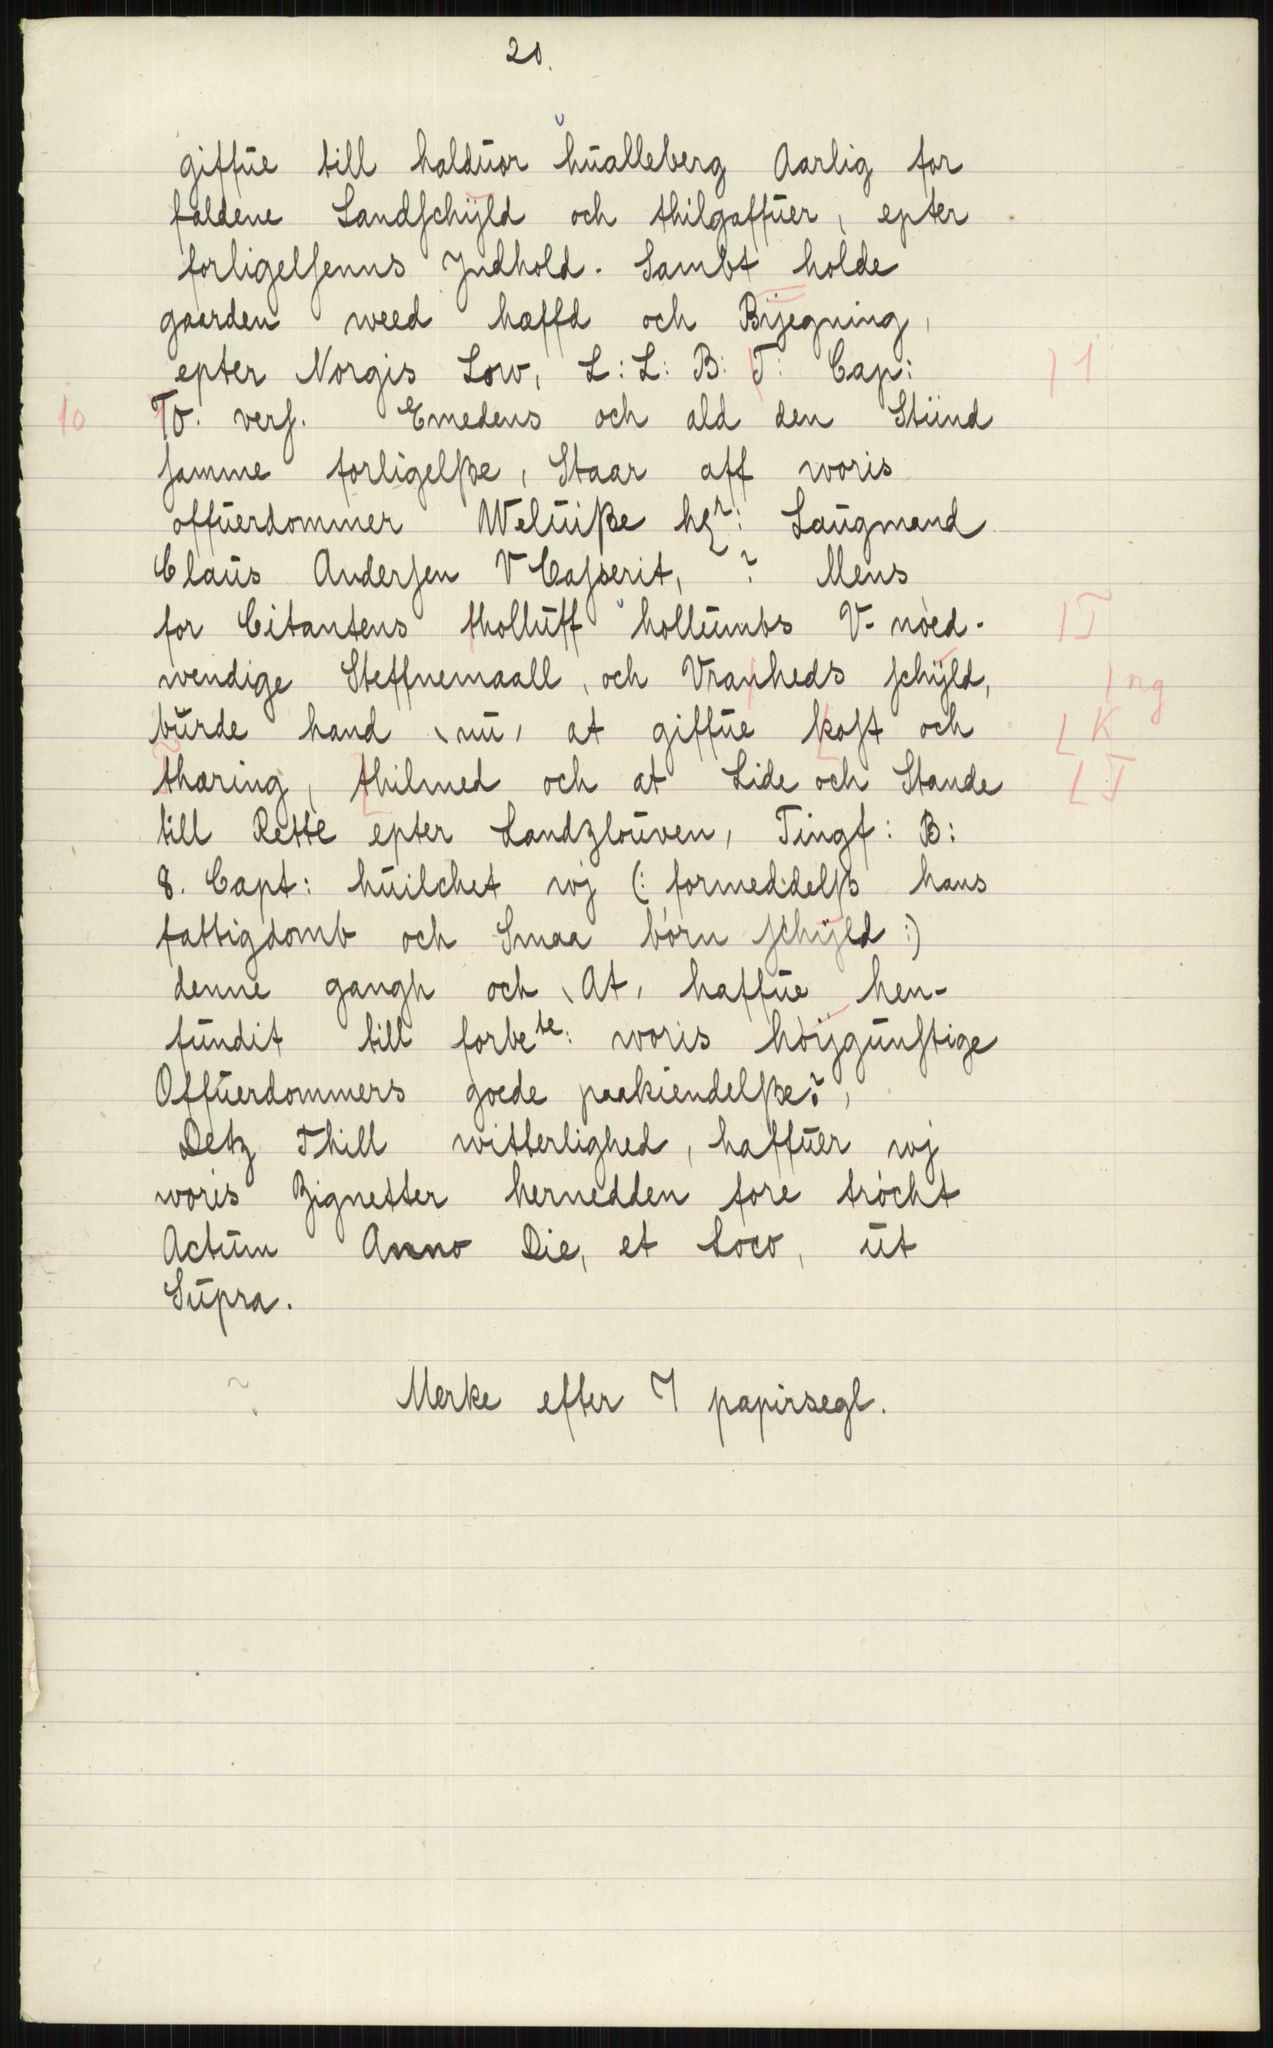 20.
giffue till halduor hualleberg Aarlig for
faldene Landschÿld och thilgaffuer, epter
forligelsenns Jndhold. Sambt holde
gaarden weed hæffd och Bÿegning,
epter Norgis Low, L: L: B: T: Cap: | 1
10 TO. vers. Emedens och ald den Stund
samme forligelsze, Staar aff woris
offuerdommer Weluisze hr: Laugmand
Claus Andersen V Casserit, ? Mens
for Citantens tholluff hollumbs V-nöed- | T
wendige Steffnemaall, och Vranheds schÿld, | ng
burde hand, nu, at giffue kost och | K
thæring, thilmed och at Lide och Stande | T
till Rette epter Landzlouven, Tingf: B:
8. Capt: huilchet wj (: formeddelsz hans
fattigdomb och Smaa börn schÿld :)
denne gangh och, At, haffue hen-
fundit till forbete: woris höÿgunstige
Offuerdommers goede paakiendelsze?,
Detz Thill witterlighed, haffuer wj
woris Zignetter hernedden fore tröcht
Actum Anno Die, et Loco, ut
Supra.
Merke efter 7 papirsegl.